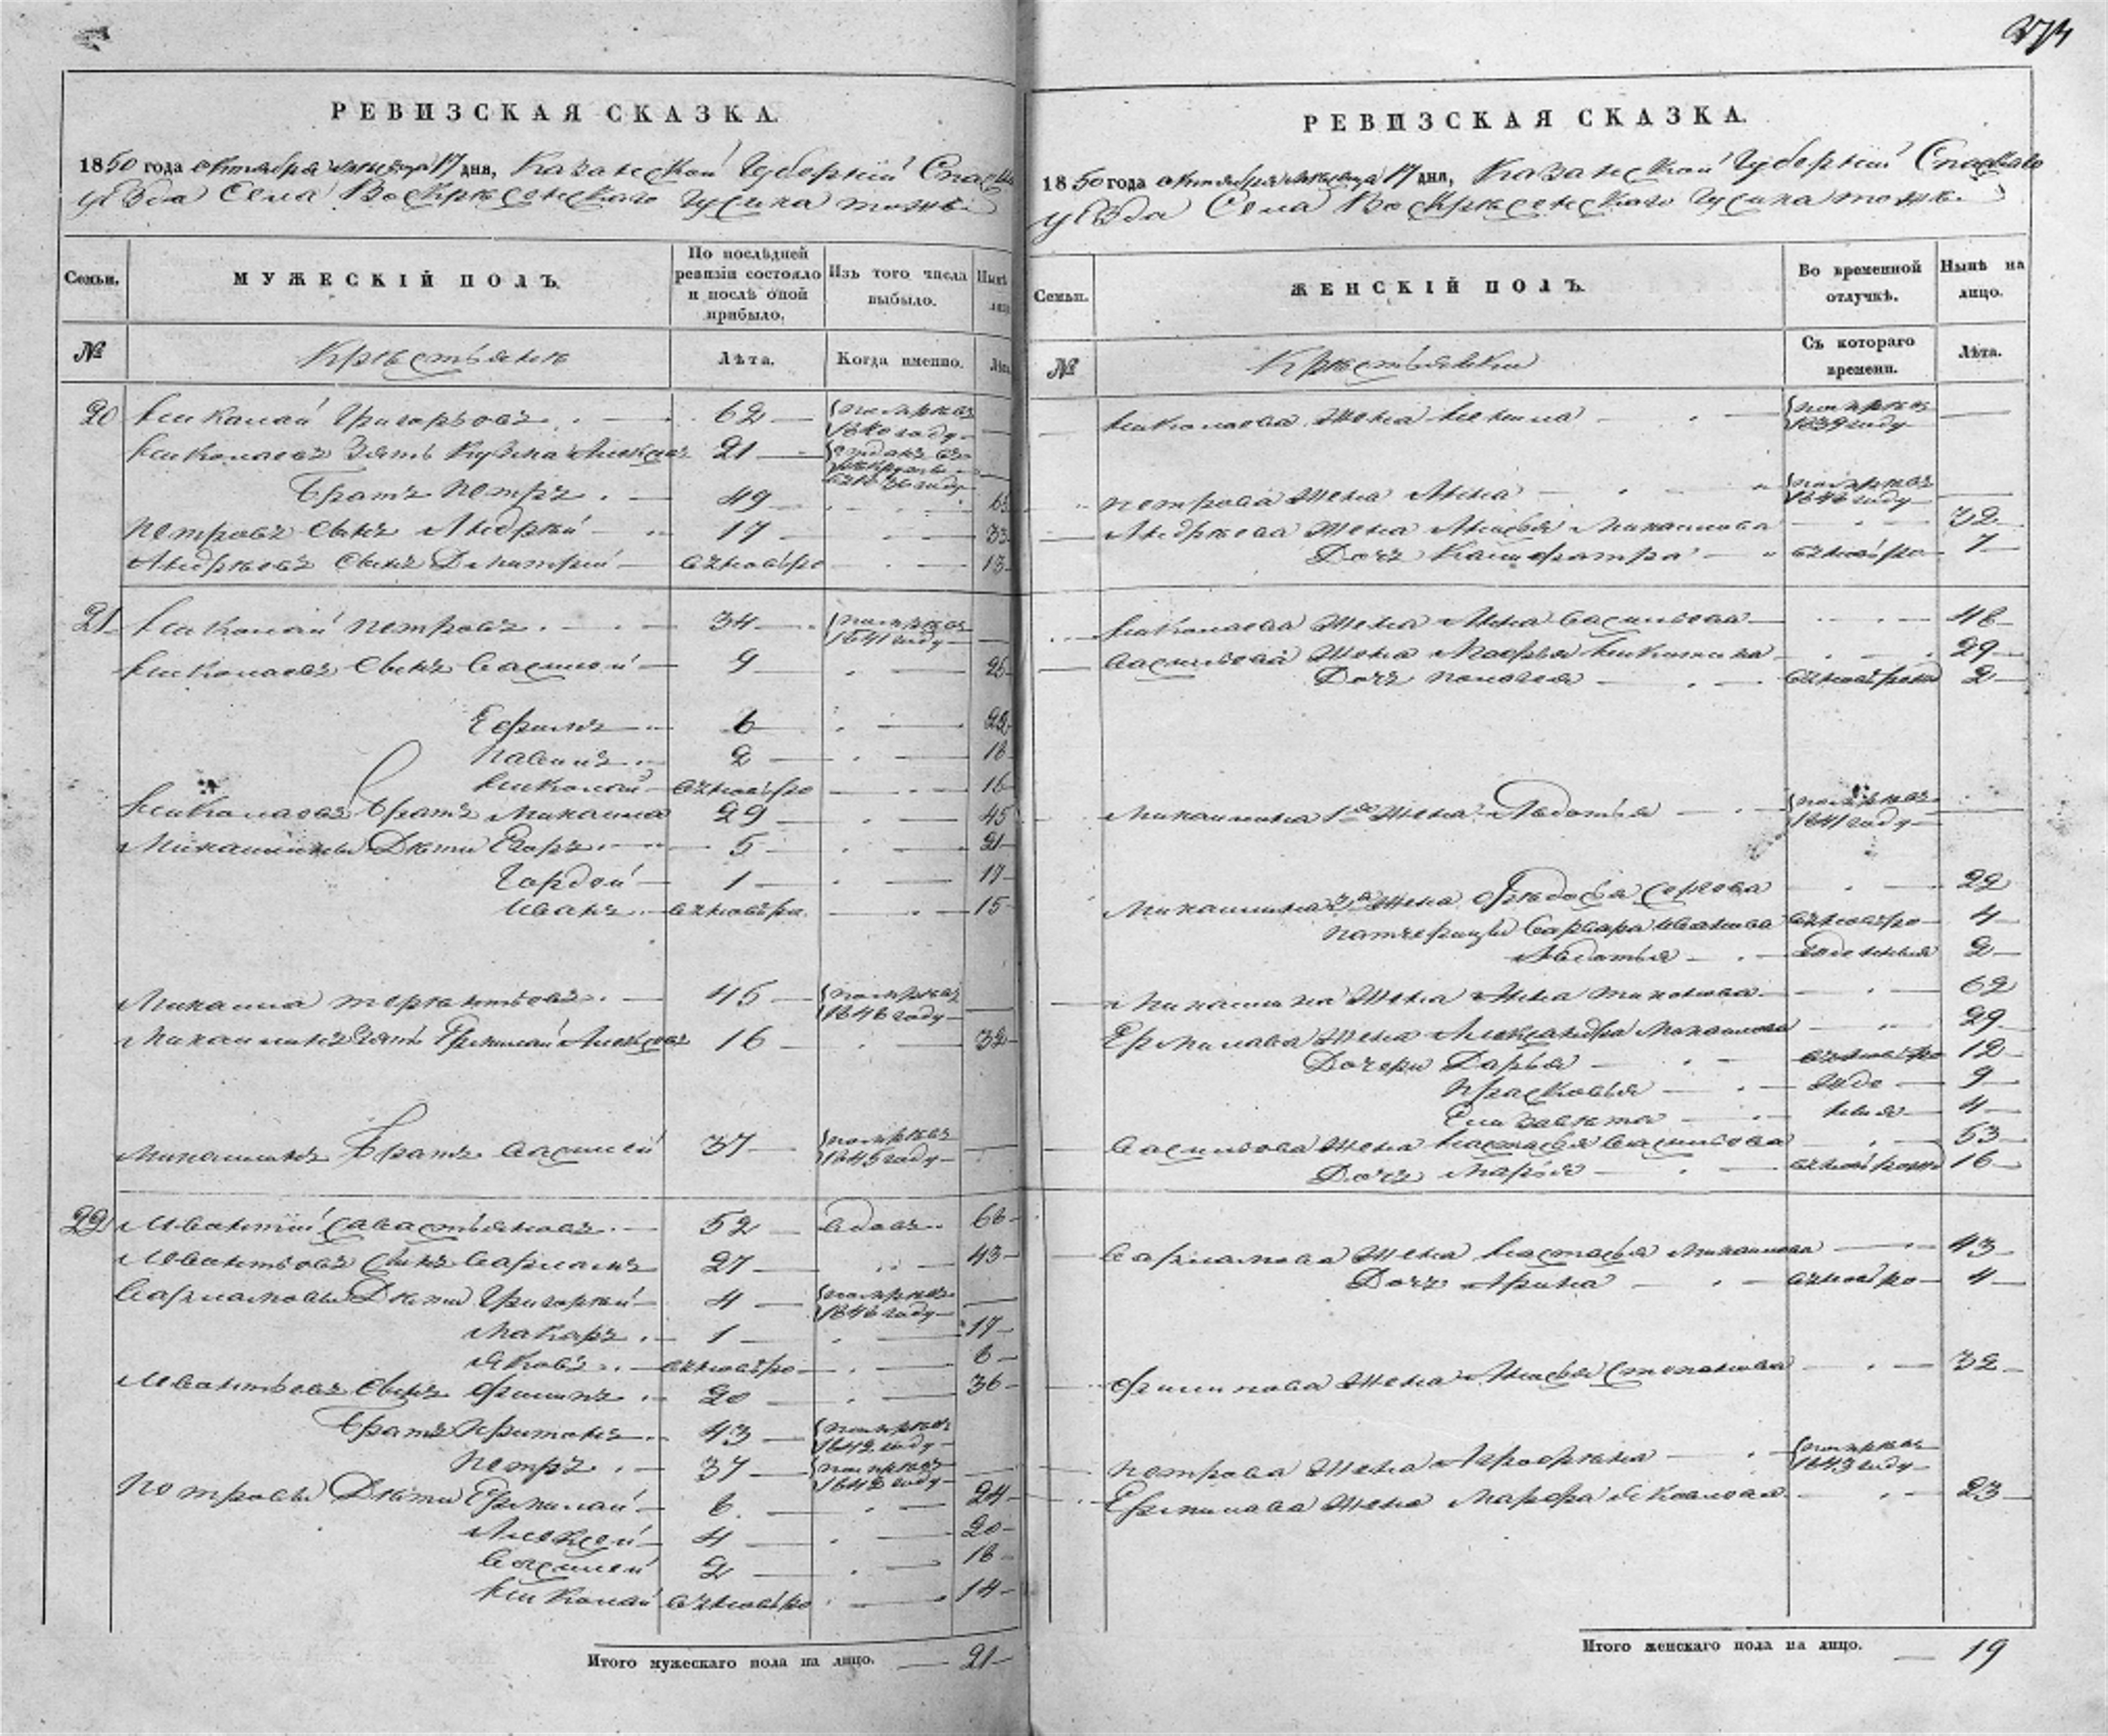 274
РЕВИЗСКАЯ СКАЗКА.
1850 года октября месяца 17 дня, Казанской Губернии Спаскаго
уѣзда Села Воскресенскаго Гусиха тожъ
Семьи. МУЖЕСКІЙ ПОЛЪ. По послѣдней ревизіи состояло и послѣ оной прибыло. Изъ того числа выбыло. Нынѣ
№ Крестьяне Лѣта. Когда именно. Лѣта
20 Николай Григорьевъ 62 померъ въ 1840 году
Николаевъ Зять Кузма Алексѣевъ 21 отданъ въ рекруты
Братъ Петръ 49
Петровъ Сынъ Андрей 17 33
Андреевъ Сынъ Дмитрей вновьро 13
21 Николай Петровъ 34 померъ въ 1841 году
Николаевъ Сынъ Василей 9 25
Ефимъ 6 22
Павелъ 2 18
Николай вновьро 16
Николаевъ Братъ Михаила 29 45
Михаиловы Дѣти Егоръ 5 21
Гордей 1 17
Иванъ вновьро 15
Михаила Терентьевъ 45 померъ въ 1846 году
Михаилинъ Зять Ермилай Алексѣевъ 16 32
Михаилинъ Братъ Василей 37 померъ въ 1845 году
22 Леонтій Савастьяновъ 52 вдовъ 68
Леонтьевъ Сынъ Варламъ 27 43
Варламовы Дѣти Григорей 4 померъ 1846 году
Макаръ 1 17
Яковъ вновьро 6
Леонтьевъ Сынъ Филипъ 20 36
Братъ Харитонъ 43 померъ 1842 году
Петръ 37 померъ 1842 году
Петровы Дѣти Ермилай 6 24
Алексей 4 20
Василей 2 18
Николай вновьро 14
Итого мужескаго пола на лицо. 21
РЕВИЗСКАЯ СКАЗКА.
1850 года октября месяца 17 дня, Казанской Губерніи Спаскаго
уѣзда Села Воскресенскаго Гусиха тожъ
Семьи. ЖЕНСКІЙ ПОЛЪ. Во временной отлучкѣ. Нынѣ на лицо.
№ Крестьянки Съ котораго времени. Лѣта.
Николаева жена померла 1839 году
Петрова жена Анна померла 1846 году
Андреева жена Михаилова 32
Дочь вновьро 7
Николаева жена Анна Васильева 48
Васильева жена Марфа Никитина 29
Дочь Пелагея 2
Михаилина 1я жена Авдотья 1841 году
Михаилина 2я жена Федосья 22
падчерицы Варвара Иванова вновьро 4
Авдотья 2
Михаилина жена Анна Тихонова 62
Ермилава жена Александра Михаилова 29
Дочери Дарья 12
Прасковья 9
Елизавета 4
Васильева жена Настасья Васильева 53
Дочь Марья 16
Варламова жена Настасья Михаилова 43
Дочь Арина вновьро 4
Филипова жена Степанова 32
Петрова жена Аграфена 1843 году
Ермилава жена Марфа Яковлева 23
Итого женскаго пола на лицо. 19